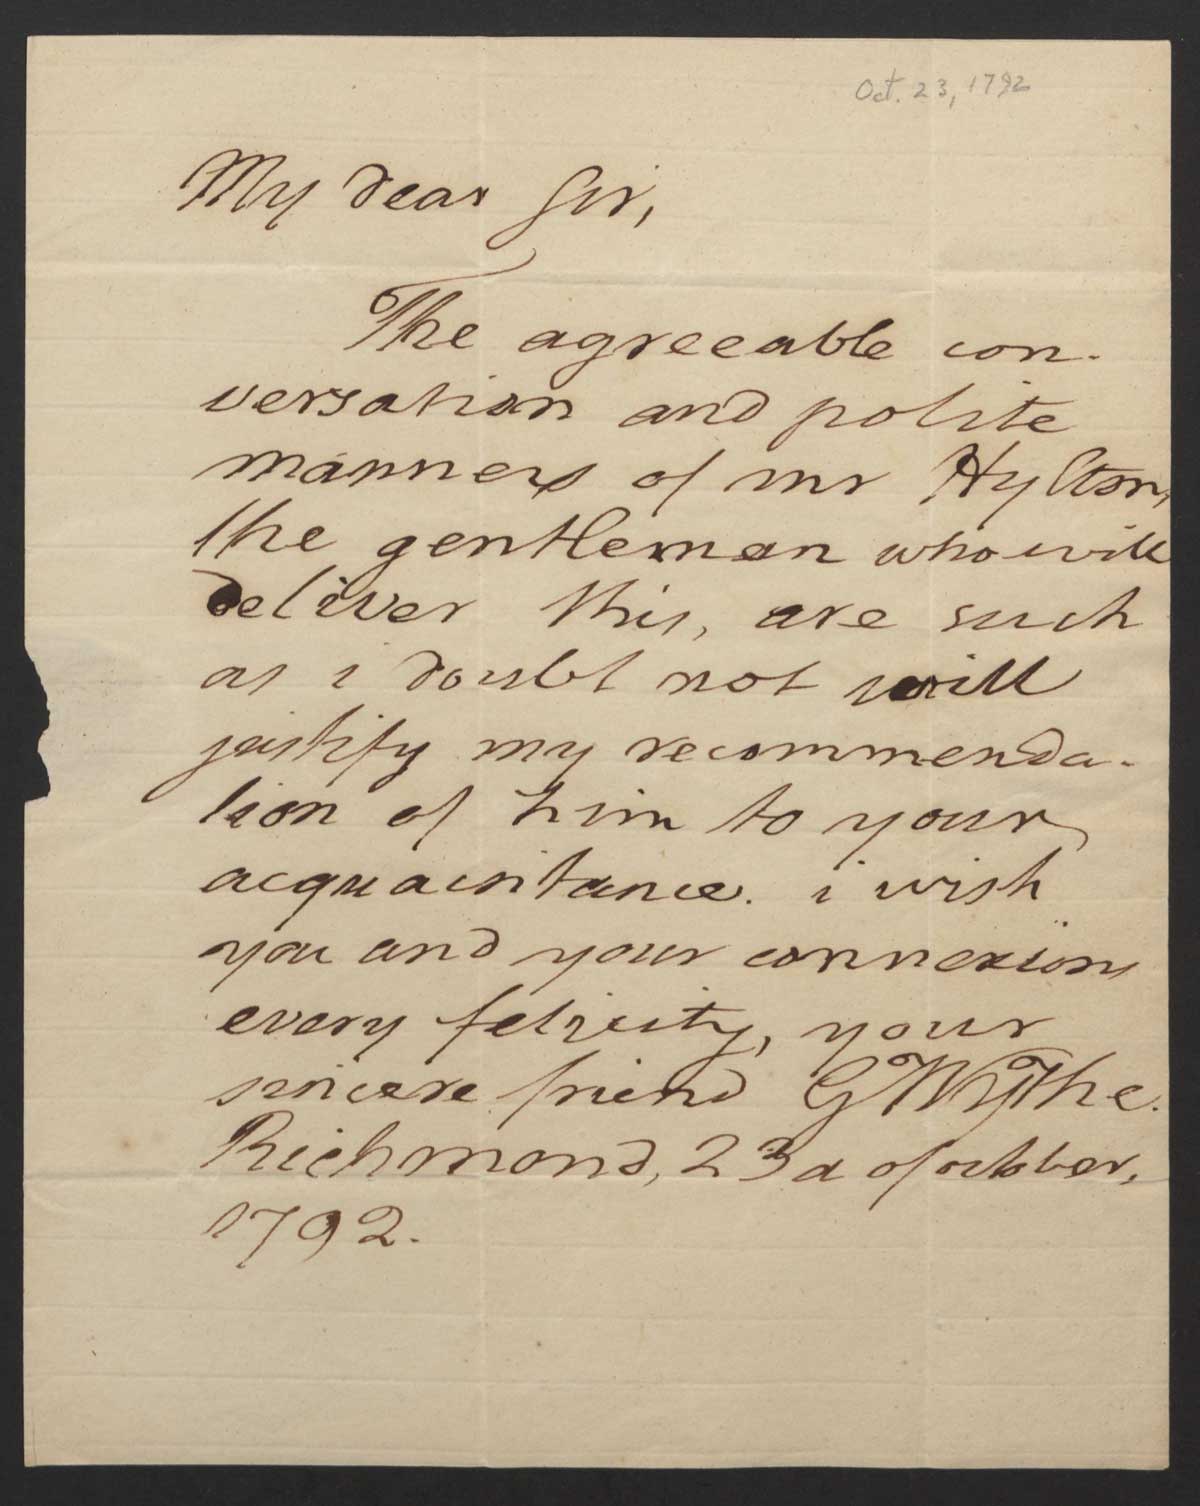 Oct. 23, 1792
My dear Sir,
The agreeable con-
versation and polite
manners of mr Hylton,
the gentleman who will
deliver this, are such
as i doubt not will
justify my recommenda-
tion of him to your
acquaintance. i wish
you and your connexions
every felicity, your
sincere friend G Wythe.
Richmond, 23d of october,
1792.